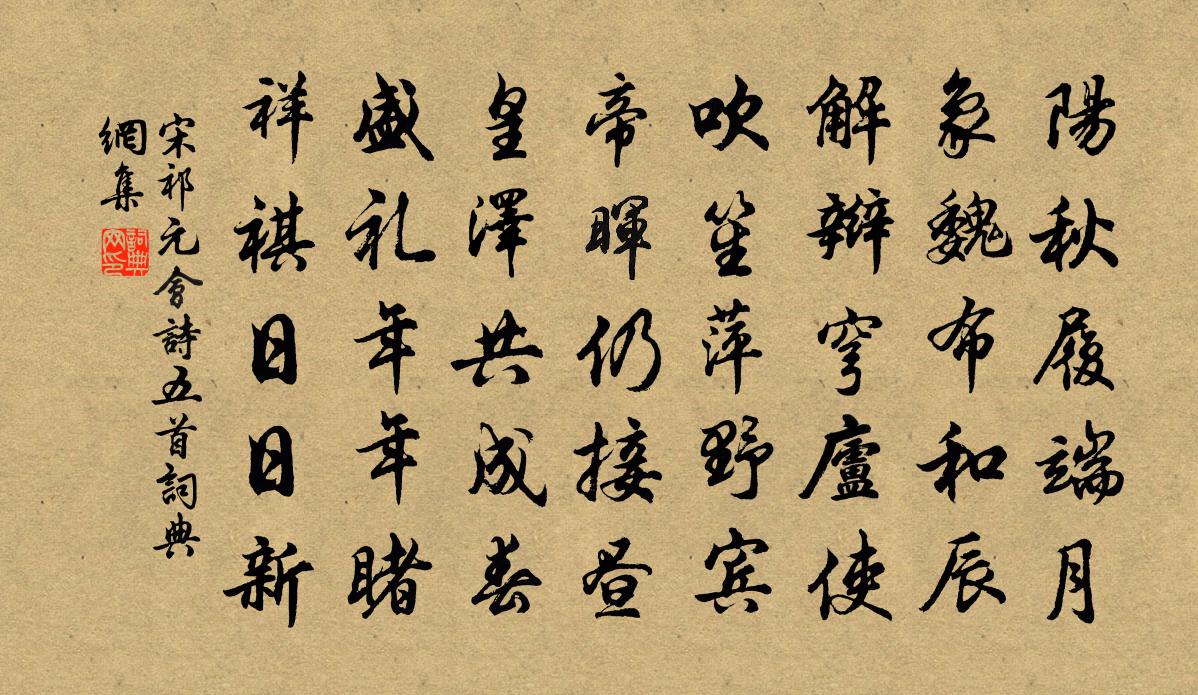 陽秋履端月
象魏布和辰
解辮穹廬使
吹笙萍野宾
帝暉仍接昼
皇澤共成春
盛礼年年睹
祥祺日日新
宋祁元會詩五首詞典
網集
詞典
网印